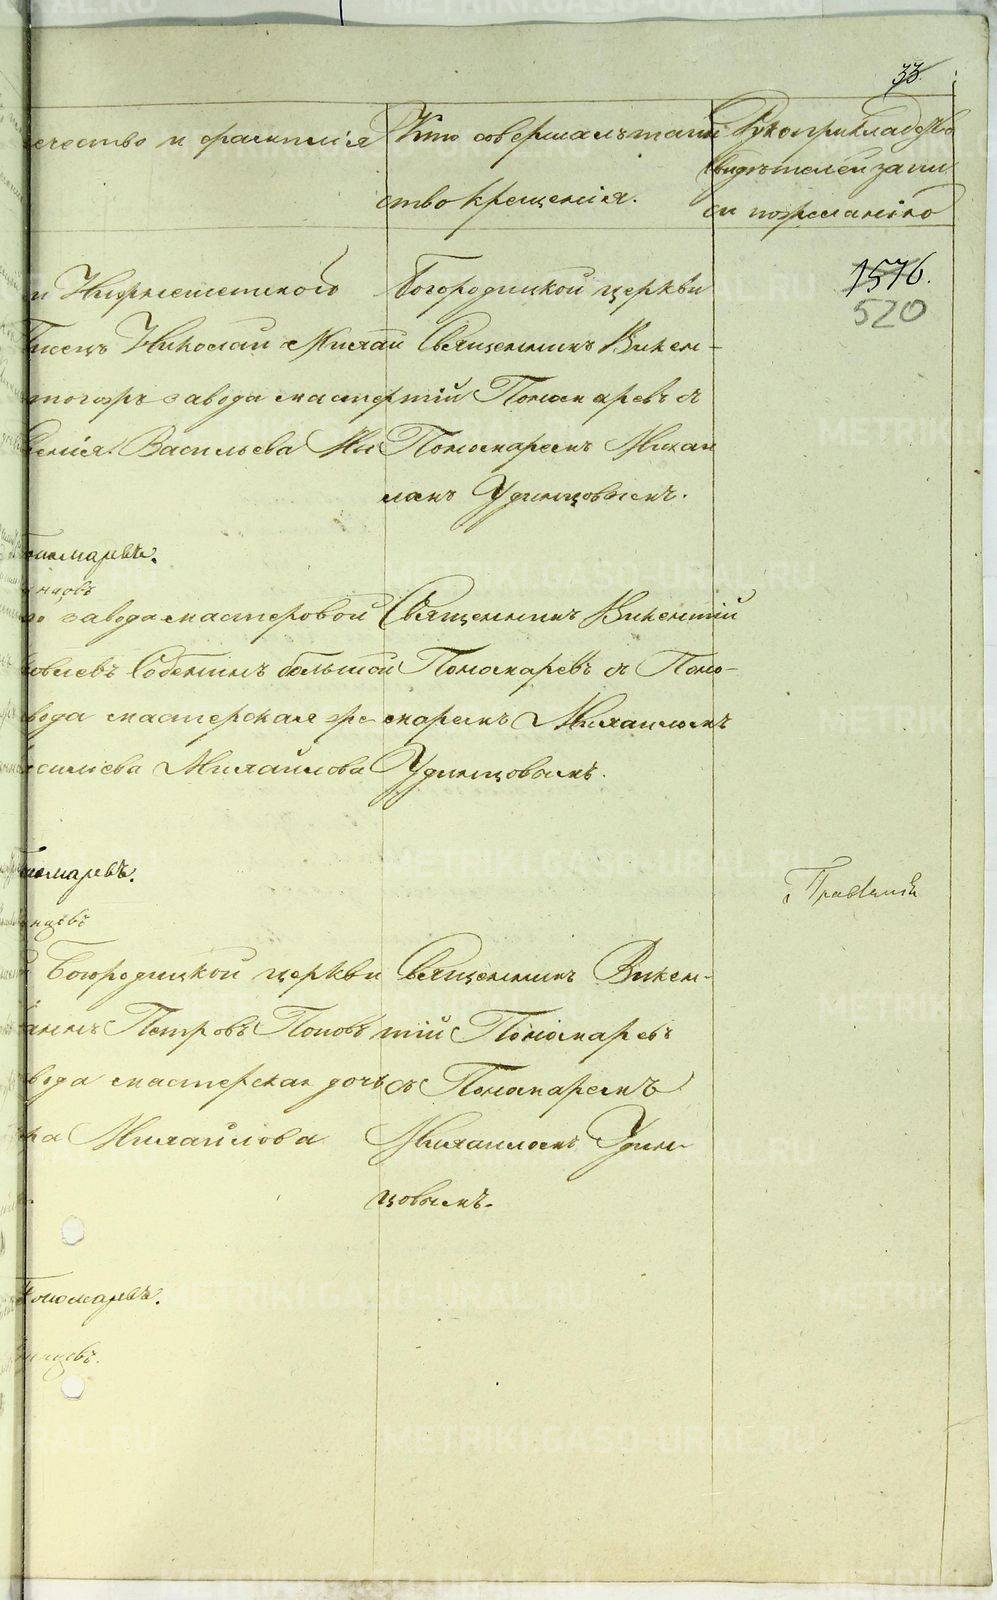 33.
отчество и фамилія
Кто совершалъ таин
ство крещенія.
Рукоприкладство
свидѣтелей запи
си по желанію
1576.
520
Николай Михаи
завода мастер
Васильева
Богородицкой церкви
Священникъ Викен-
тій Пономаревъ съ
Пономаремъ Михаи
ломъ Удинцовымъ.
Пономаревъ.
нцовъ
завода мастеровой
большой
вода мастерская же-
Михайлова
Священникъ Викентій
Пономаревъ съ Поно-
маремъ Михаиломъ
Удинцовымъ.
номаревъ.
нцовъ
Богородицкой церкви
Петровъ Поповъ
вода мастерская дочь
Михайлова
Священникъ Викен-
тій Пономаревъ
съ Пономаремъ
Михаиломъ Удин-
цовымъ.
Пономаревъ.
нцовъ.
METRIKI.GASO-URAL.RU